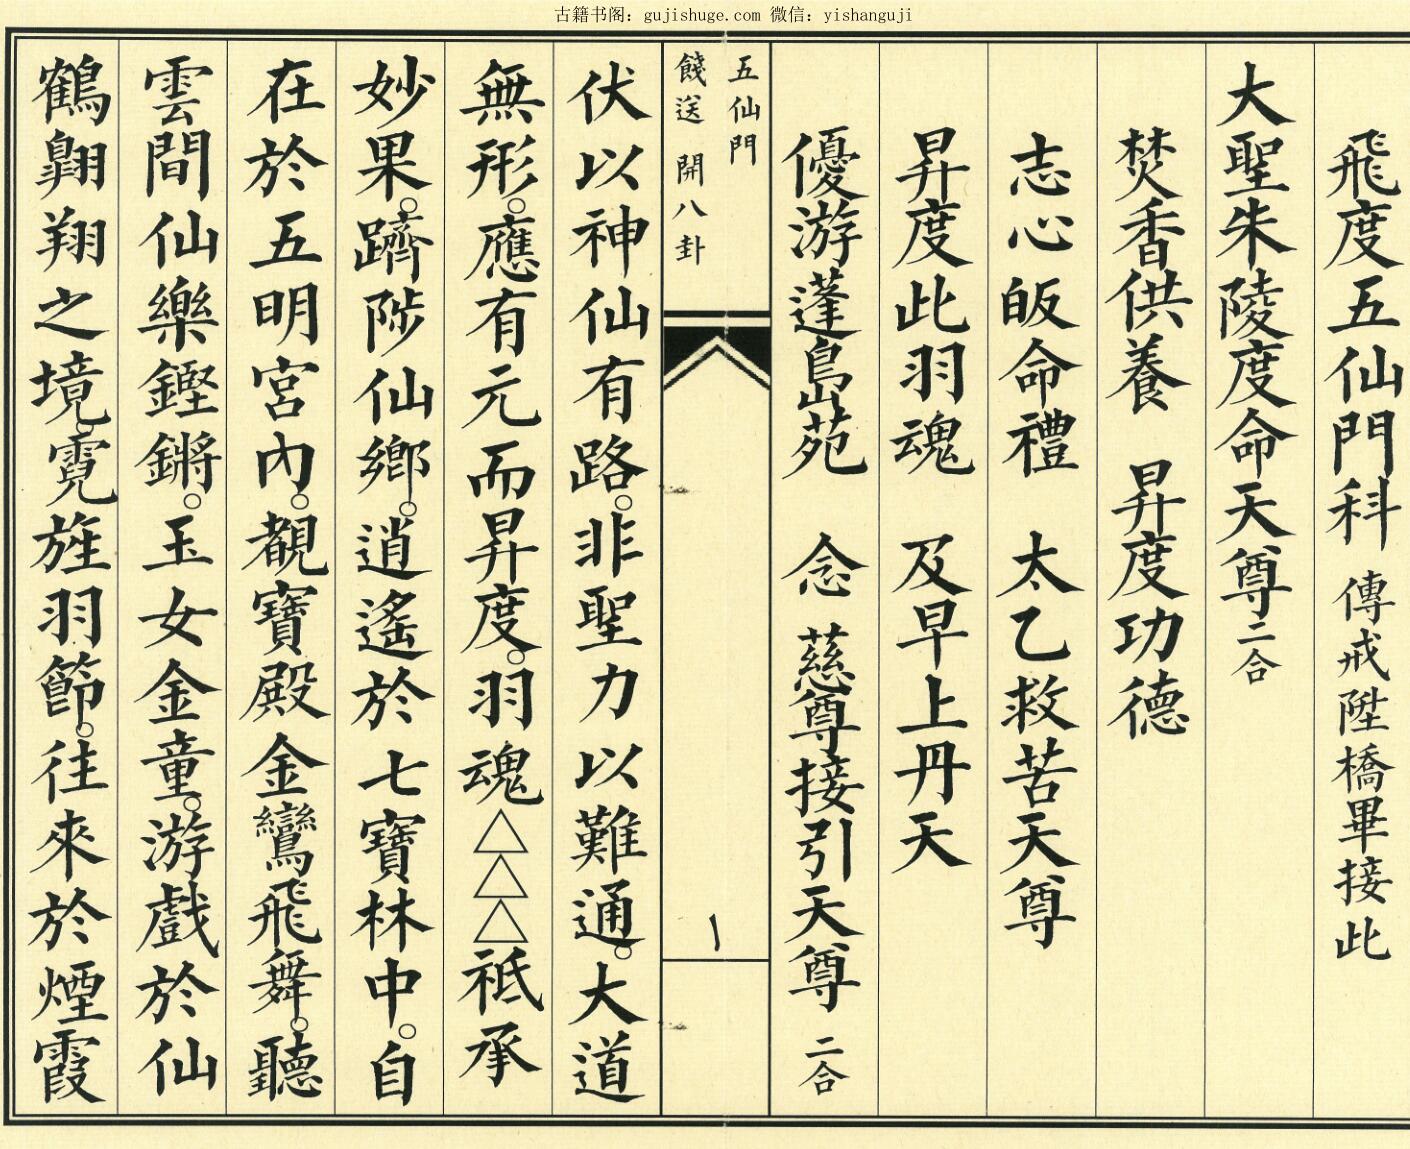 古籍书阁：gujishuge.com 微信：yishanguji
飛度五仙門科 傳戒陞橋畢接此
大聖朱陵度命天尊二合
焚香供養 昇度功德
志心皈命禮 太乙救苦天尊
昇度此羽魂 及早上丹天
優游蓬島苑 念 慈尊接引天尊 二合
五仙門
餞送 開八卦
一
伏以神仙有路。非聖力以難通。大道
無形。應有元而昇度。羽魂△△△祗承
妙果。躋陟仙鄉。逍遙於七寶林中。自
在於五明宮內。覩寶殿金鸞飛舞。聽
雲間仙樂鏗鏘。玉女金童。游戲於仙
鶴翱翔之境。霓旌羽節。往來於煙霞